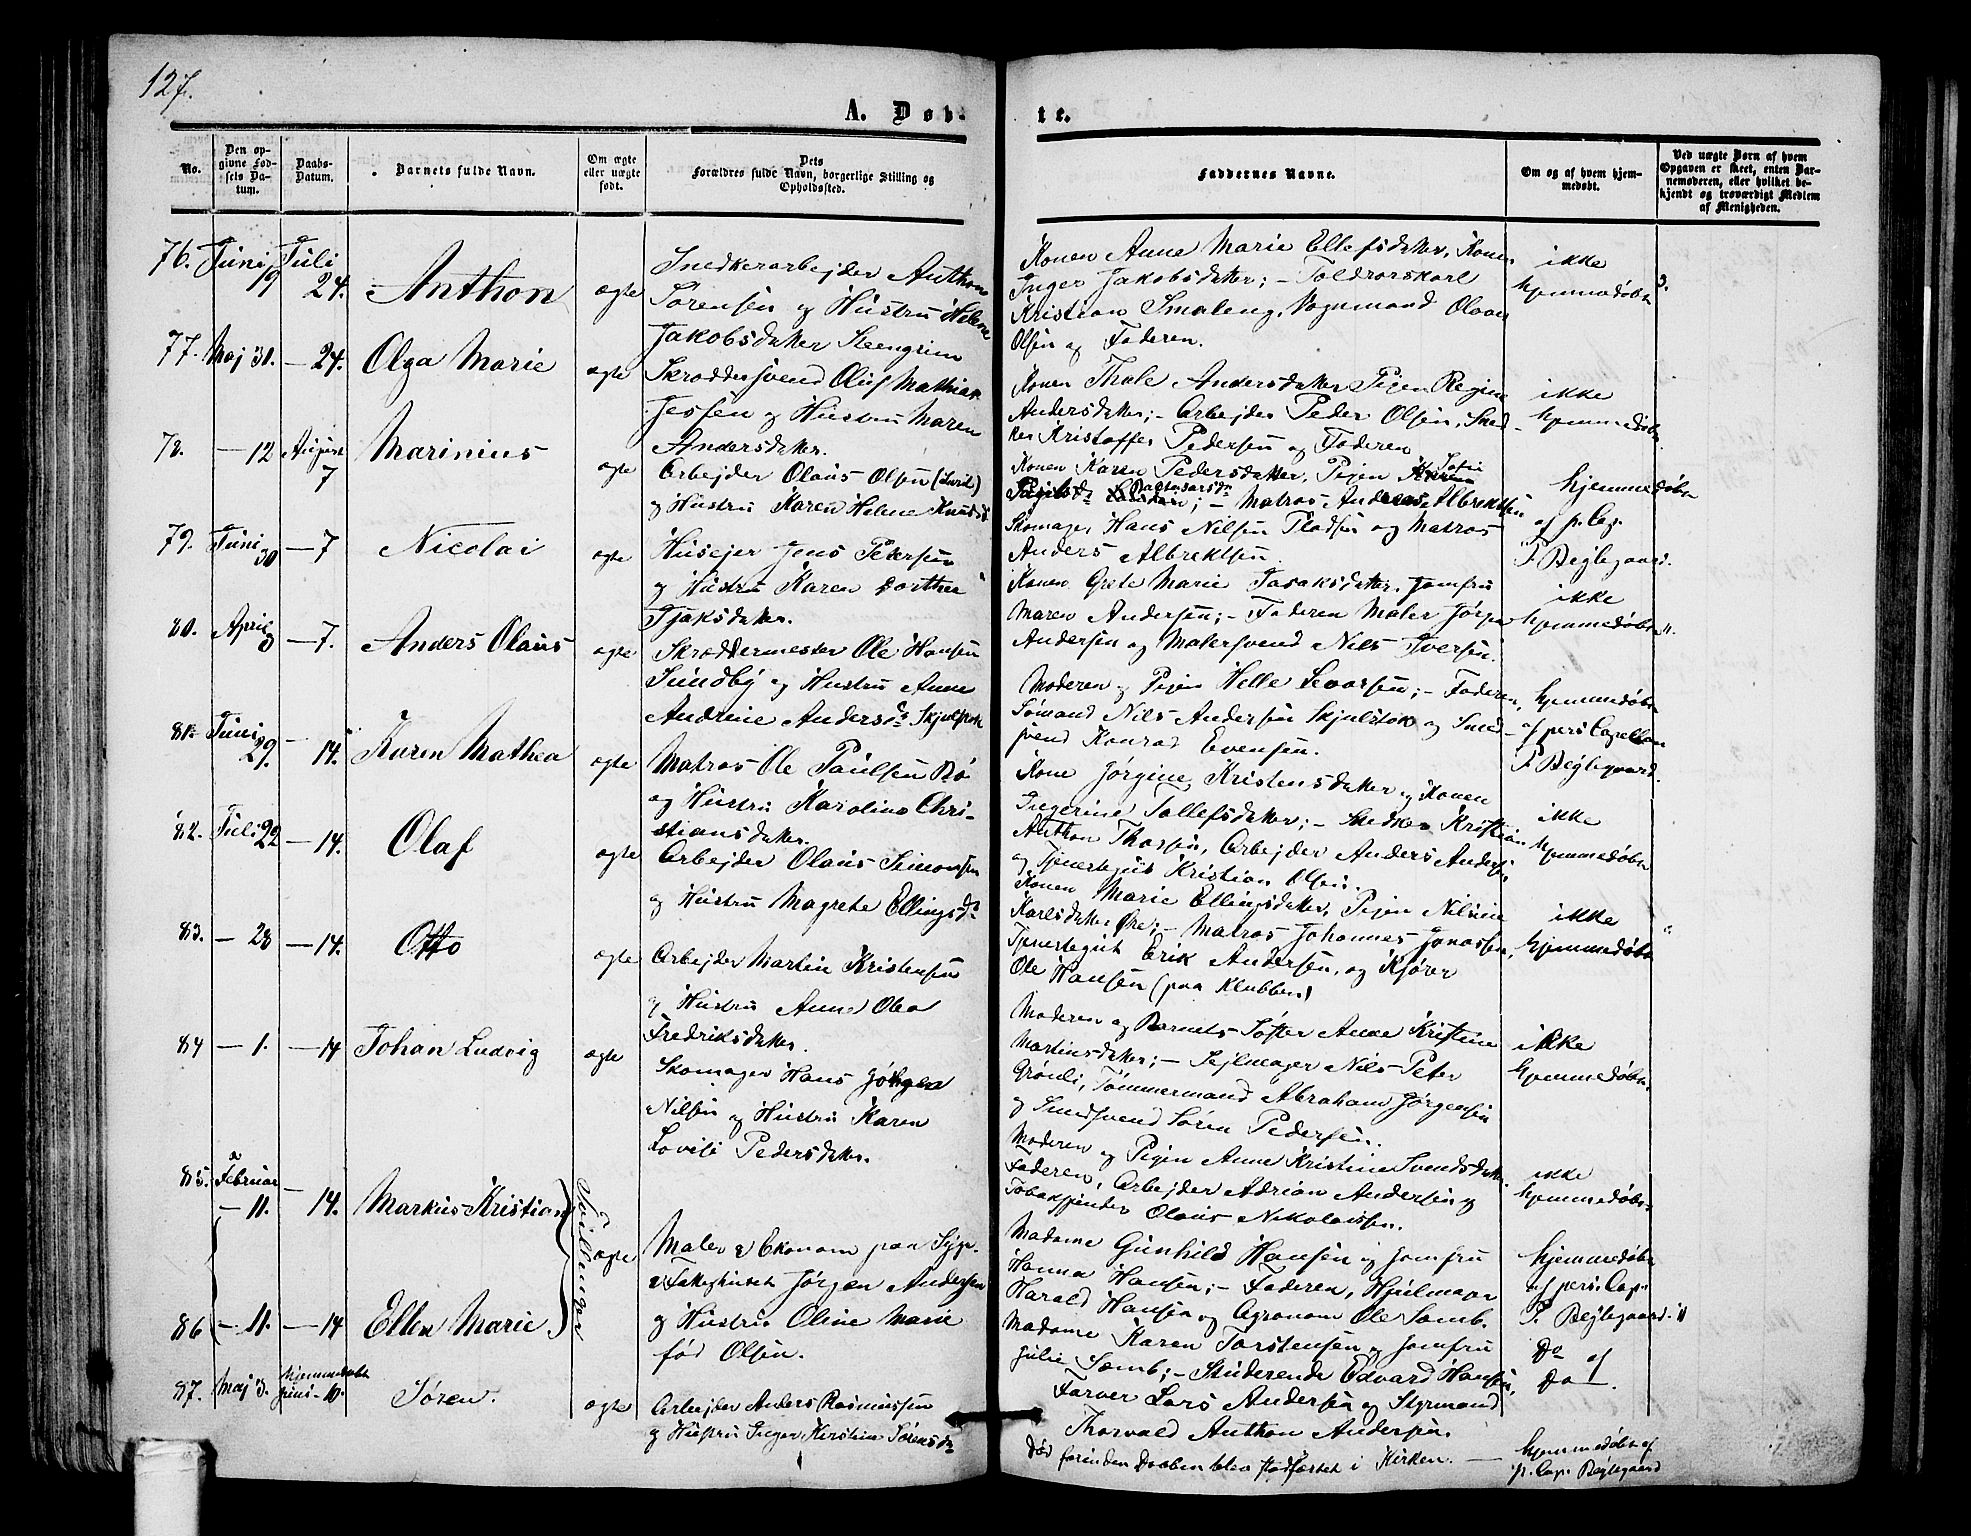 127.
A. Døb-
te.
No.
Den op-
givne Fød-
sels Da-
tum.
Daabs-
Datum.
Barnets fulde Navn.
Om ægte
eller uægte
født.
Dets
Forældres fulde Navn, borgerlige Stilling og
Opholdssted.
Faddernes Navne.
Om og af hvem hjem-
medøbt.
Ved uægte Børn af hvem
Opgaven er skeet, enten Bar-
nemoderen, eller hvilket be-
kjendt og troværdigt Medlem
af Menigheden.
76. Juni 19 Juli 24. Anthon ægte
Snedkerarbejder Anthon
Sørensen og Hustru Helene
Jakobsdatter Steengrim
Konen Anne Marie Ellefsdatter, Konen
Inger Jakobsdatter; - Toldrorskarl
Kristian Smaleng, Vognmand Olaus
Olsen og Faderen.
ikke
hjemmedøbt
77. Maj 31. - 24. Olga Marie ægte
Skræddersvend Oluf Mathias
Jessen og Hustru Maren
Andersdatter.
Konen Thale Andersdatter, Pigen Regine
Andersdatter; - Arbejder Peder Olsen, Sned-
ker Kristoffer Pedersen og Faderen
ikke
hjemmedøbt
78. - 12 August 7 Marinius ægte
Arbejder Olaus Olsen
og Hustru Karen Helene
Konen Karen Pedersdatter, Pigen
Baltasarsdr; - Matros Anders Albrektsen
Skomager Hans Nilsen og Matros
Anders Albrektsen.
hjemmedøbt
af p. Cap.
P. Bøglegaard.
79. Juni 30 - 7 Nicolai ægte
Husejer Jens Petersen
og Hustru Karen Dorthea
Isaksdatter.
Konen Grete Marie Isaksdatter, Jomfru
Maren Andersen; - Faderen Maler Jørgen
Andersen og Malersvend Nils Iversen.
ikke
hjemmedøbt
80. April 8 - 7. Anders Olaus ægte
Skræddermester Ole Hansen
Sundby og Hustru Anne
Andrine Andersdr Skjulstok
Moderen og Pigen Helle Sevarsen; - Faderen,
Sømand Nils Andersen Skjulstok og Smed-
svend Konrad Evensen.
hjemmedøbt
af pers Capellan
P. Bøglegaard.
81. Juni 29. - 14. Karen Mathea ægte
Matros Ole Paulsen Bø
og Hustru Karoline Chri-
stiansdatter.
Kone Jørgine Kristensdatter og Konen
Ingerine Tollefsdatter; - Snedker Kristian
Anthon Thorsen, Arbejder Anders Andersen
og Tjenestegut Kristian Olsen.
ikke
hjemmedøbt
82. Juli 22 - 14. Olaf ægte
Arbejder Olaus Simonsen
og Hustru Magrete Ellingsdr
Konen Marie Ellingsdatter, Pigen Nilsine
Karlsdatter Øre; - Matros Johannes Jonassen,
Tjenestegut Erik Andersen, og Kjører
Ole Hansen (paa Klubben)
ikke
hjemmedøbt
83. - 28 - 14. Otto ægte
Arbejder Martin Kristensen
og Hustru Anne Olea
Fredriksdatter.
Moderen og Barnets Søster Anne Kristine
Martinsdatter; - Sejlmager Nils Peter
Grønli, Tømmermand Abraham Jørgensen
og Smedsvend Søren Pedersen.
ikke
hjemmedøbt.
84 - 1. - 14 Johan Ludvig ægte
Skomager Hans Jørgen
Nilsen og Hustru Karen
Lovise Pedersdatter.
Moderen og Pigen Anne Kristine Svendsdatter,
Faderen, Arbejder Adrian Andersen og
Tobakspinder Olaus Nikolaisen.
ikke
hjemmedøbt.
85. Februar - 11. - 14. Markus Kristian
Tvillinger
ægte
Maler & Økonom paa Syge-
& Fattighuset Jørgen Andersen
og Hustru Oline Marie
fød Olsen.
Madame Gunhild Hansen og Jomfru
Hanna Hansen; - Faderen, Hjulmager
Harald Hansen og Agronom Ole Somb.
hjemmedøbt
af pers. Cap.
P. Bøglegaard.
86 - 11. - 14 Ellen Marie
Madame Karen Torstensen og Jomfru
Julie Somb; - Studerende Edvard Hansen,
Farver Lars Andersen og Styrmand
Thorvald Anthon Andersen.
Do af
Do
87. Maj 3. hjemmedøbt Juni - 10. Søren. ægte
Arbejder Anders Rasmussen
og Hustru Inger Kirstine Sørensdr
Død førinden Daaben blev stadfæstet i Kirken. -
hjemmedøbt af
p. Cap. Bøglegaard